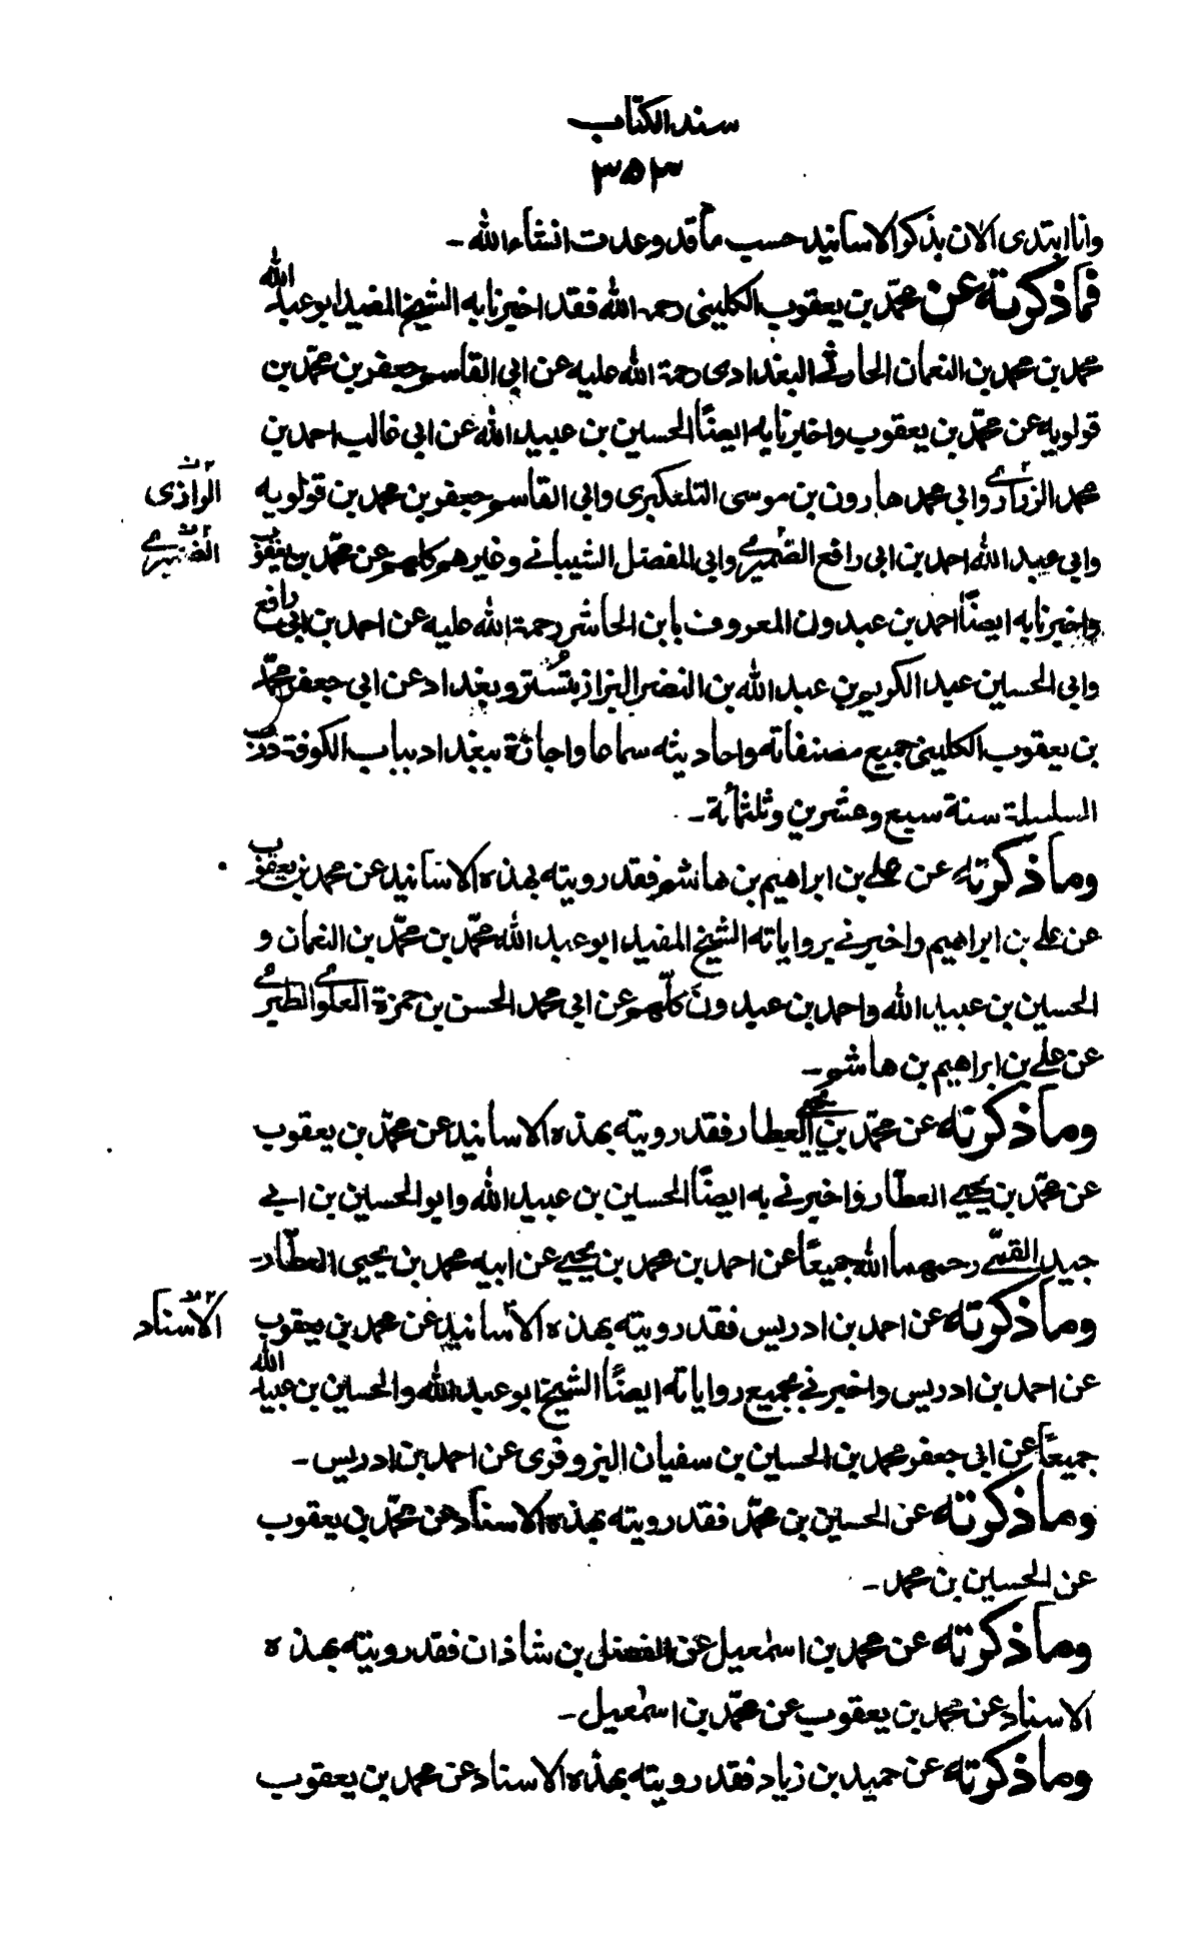 سند الكتاب
٣٥٣
وانا ابتدى الان بذكر الاسانيد حسب ما قد وعدت انشاء الله -
فما ذكرته عن محمّد بن يعقوب الكلينى رحمه الله فقد اخبرنا به الشيخ المفيد ابو عبد الله
محمد بن محمد بن النعمان الحارثى البغدادى رحمة الله عليه عن ابى القاسم جعفر بن محمّد بن
قولويه عن محمّد بن يعقوب واخبرنا به ايضًا الحسين بن عبيد الله عن ابى غالب احمد بن
محمد الزرارى وابى محمد هارون بن موسى التلعكبرى وابى القاسم جعفر بن محمد بن قولويه
الرازى
وابى عبد الله احمد بن ابى رافع الصّيمرى وابى المفضل الشيبانى وغيرهم كلهم عن محمّد بن يعقوب
واخبرنا به ايضًا احمد بن عبدون المعروف بابن الحاشر رحمة الله عليه عن احمد بن ابى رافع
وابى الحسين عبد الكريم بن عبد الله بن النضر البزاز بتُستر وبغداد عن ابى جعفر محمّد
بن يعقوب الكلينى جميع مصنفاته واحاديثه سماعا واجازة ببغداد بباب الكوفة درب
السلسلة سنة سبع وعشرين وثلثمائة -
وما ذكرته عن على بن ابراهيم بن هاشم فقد رويته بهذه الاسانيد عن محمد بن يعقوب
عن على بن ابراهيم واخبرنى برواياته الشيخ المفيد ابو عبد الله محمّد بن محمّد بن النعمان و
الحسين بن عبيد الله واحمد بن عبدون كلّهم عن ابى محمد الحسن بن حمزة العلوى الطبرى
عن على بن ابراهيم بن هاشم -
وما ذكرته عن محمّد بن يحيى العطار فقد رويته بهذه الاسانيد عن محمّد بن يعقوب
عن محمّد بن يحيى العطّار واخبرنى به ايضًا الحسين بن عبيد الله وابو الحسين بن ابى
جيد القمّى رحمهما الله جميعًا عن احمد بن محمد بن يحيى عن ابيه محمد بن يحيى العطّار -
وما ذكرته عن احمد بن ادريس فقد رويته بهذه الاسانيد عن محمد بن يعقوب
الاسناد
عن احمد بن ادريس واخبرنى بجميع رواياته ايضًا الشيخ ابو عبد الله والحسين بن عبيد الله
جميعًا عن ابى جعفر محمد بن الحسين بن سفيان البزوفرى عن احمد بن ادريس -
وما ذكرته عن الحسين بن محمّد فقد رويته بهذه الاسناد عن محمّد بن يعقوب
عن الحسين بن محمد -
وما ذكرته عن محمد بن اسمٰعيل عن الفضل بن شاذان فقد رويته بهذه
الاسناد عن محمد بن يعقوب عن محمّد بن اسمٰعيل -
وما ذكرته عن حميد بن زياد فقد رويته بهذه الاسناد عن محمد بن يعقوب